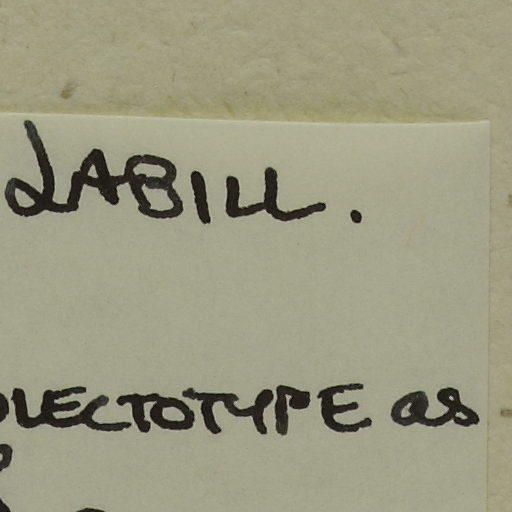 LABILL.
LECTOTYPE as